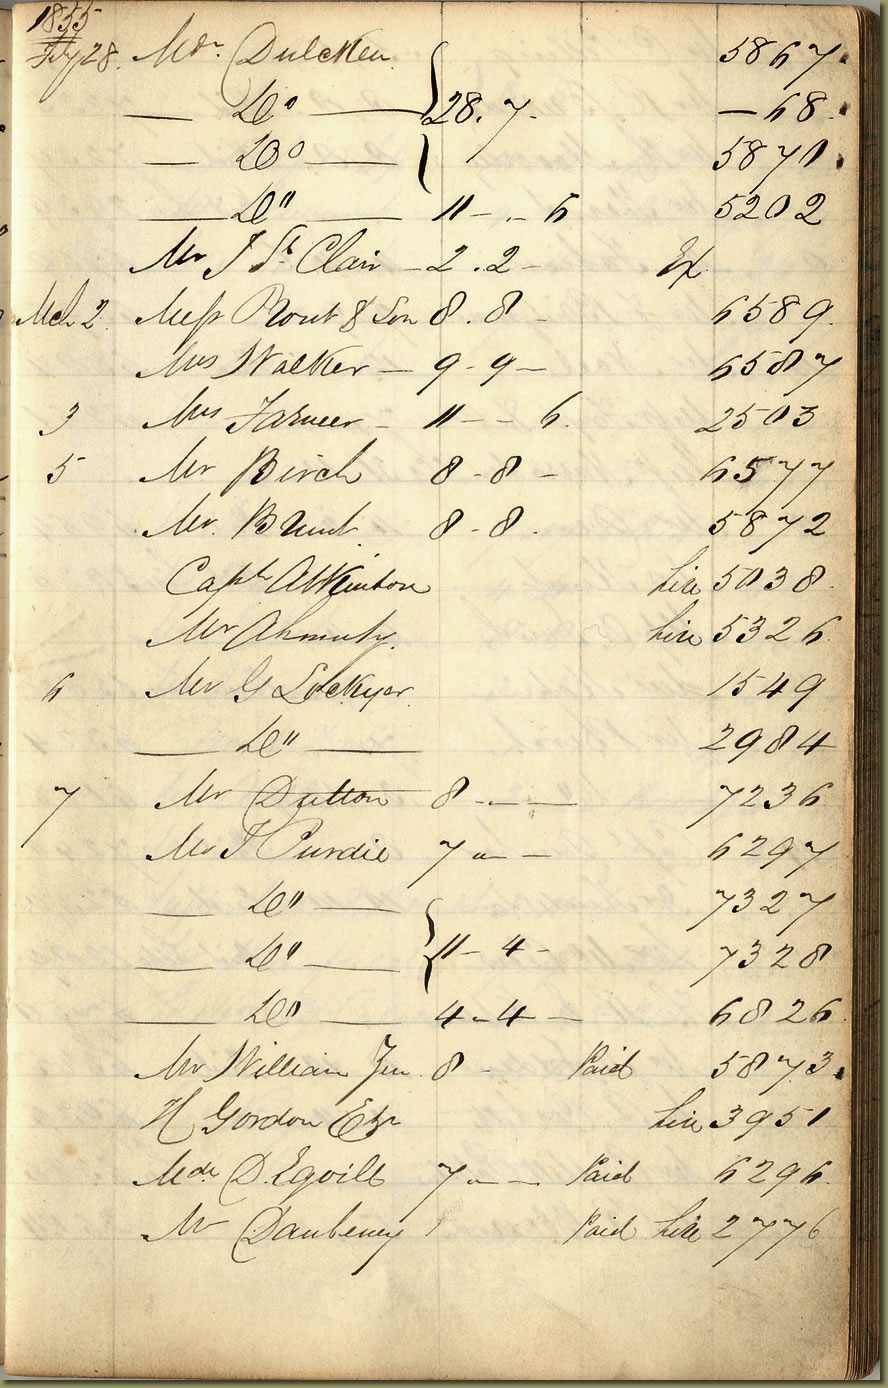 1855
Feby 28. Mdm Dulcken 5867.
— Do — 28. 7 - — 68.
— Do — 5870
— Do" — 11 - . - 6 5202
Mr J St Clair - 2 . 2 - Ex
Mch 2 Messr Prout & Son 8 . 8 - 6589.
Mrs Walker — 9 - 9 — 6587
3 Mrs Farmer - 11 - - 6. 2503
5 Mr Birch 8 - 8 - 6577
Mr. Brunt 8 - 8 . 5872
Capt Atkinson hire 5038.
Mr Ahmuty. hire 5326
6 Mr G Lockyer 1549
— Do" — 2984
7 Mr Dutton 8 - — — 7236
Mr J Purdie 7 " — 6297
— Do" — 7327
— Do" — 11 - 4 - 7328
— Do — 4 - 4 — 6826.
Mr William Jun 8 - Paid 5873.
H Gordon Esqr hire 3951
Mde D.Egville 7 " — — Paid 6296.
Mr Daubeney Paid hire 2776